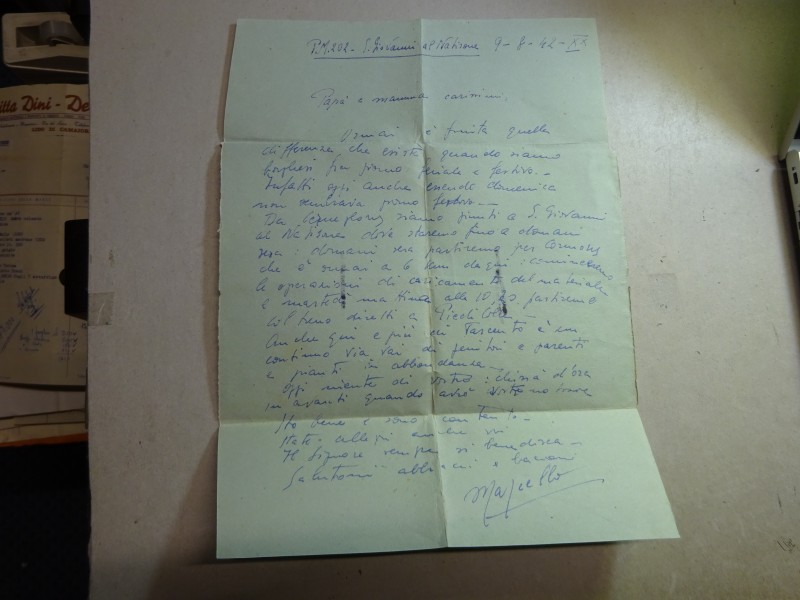 P.M. 202 - S. Giovanni al Natisone 9-8-42-XX
Papà e mamma carissimi,
Ormai è finita quella
differenza che esiste quando siamo
borghesi fra giorno feriale e festivo. -
Infatti oggi anche essendo domenica
non sembrava giorno festivo. -
Da siamo giunti a S. Giovanni
al Natisone dove staremo fino a domani
sera: domani sera partiremo per Cormons
che è ormai a 6 km da qui: cominceremo
le operazioni di caricamento del materiale
e martedì mattina alle 10,23 partiremo
col treno diretti a
Anche qui e più di Tarcento è un
continuo via vai di genitori e parenti
e pianti in abbondanza. -
Oggi niente di vostro: chissà d'ora
in avanti quando avrò vostre nuove
Sto bene e sono contento -
State allegri anche voi
Il Signore sempre vi benedica -
Salutoni abbracci e bacioni
Marcello
itta Dini - De